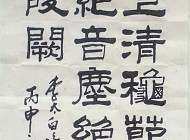 上清穐節
絕音塵絕
陵闕
李太白
丙申